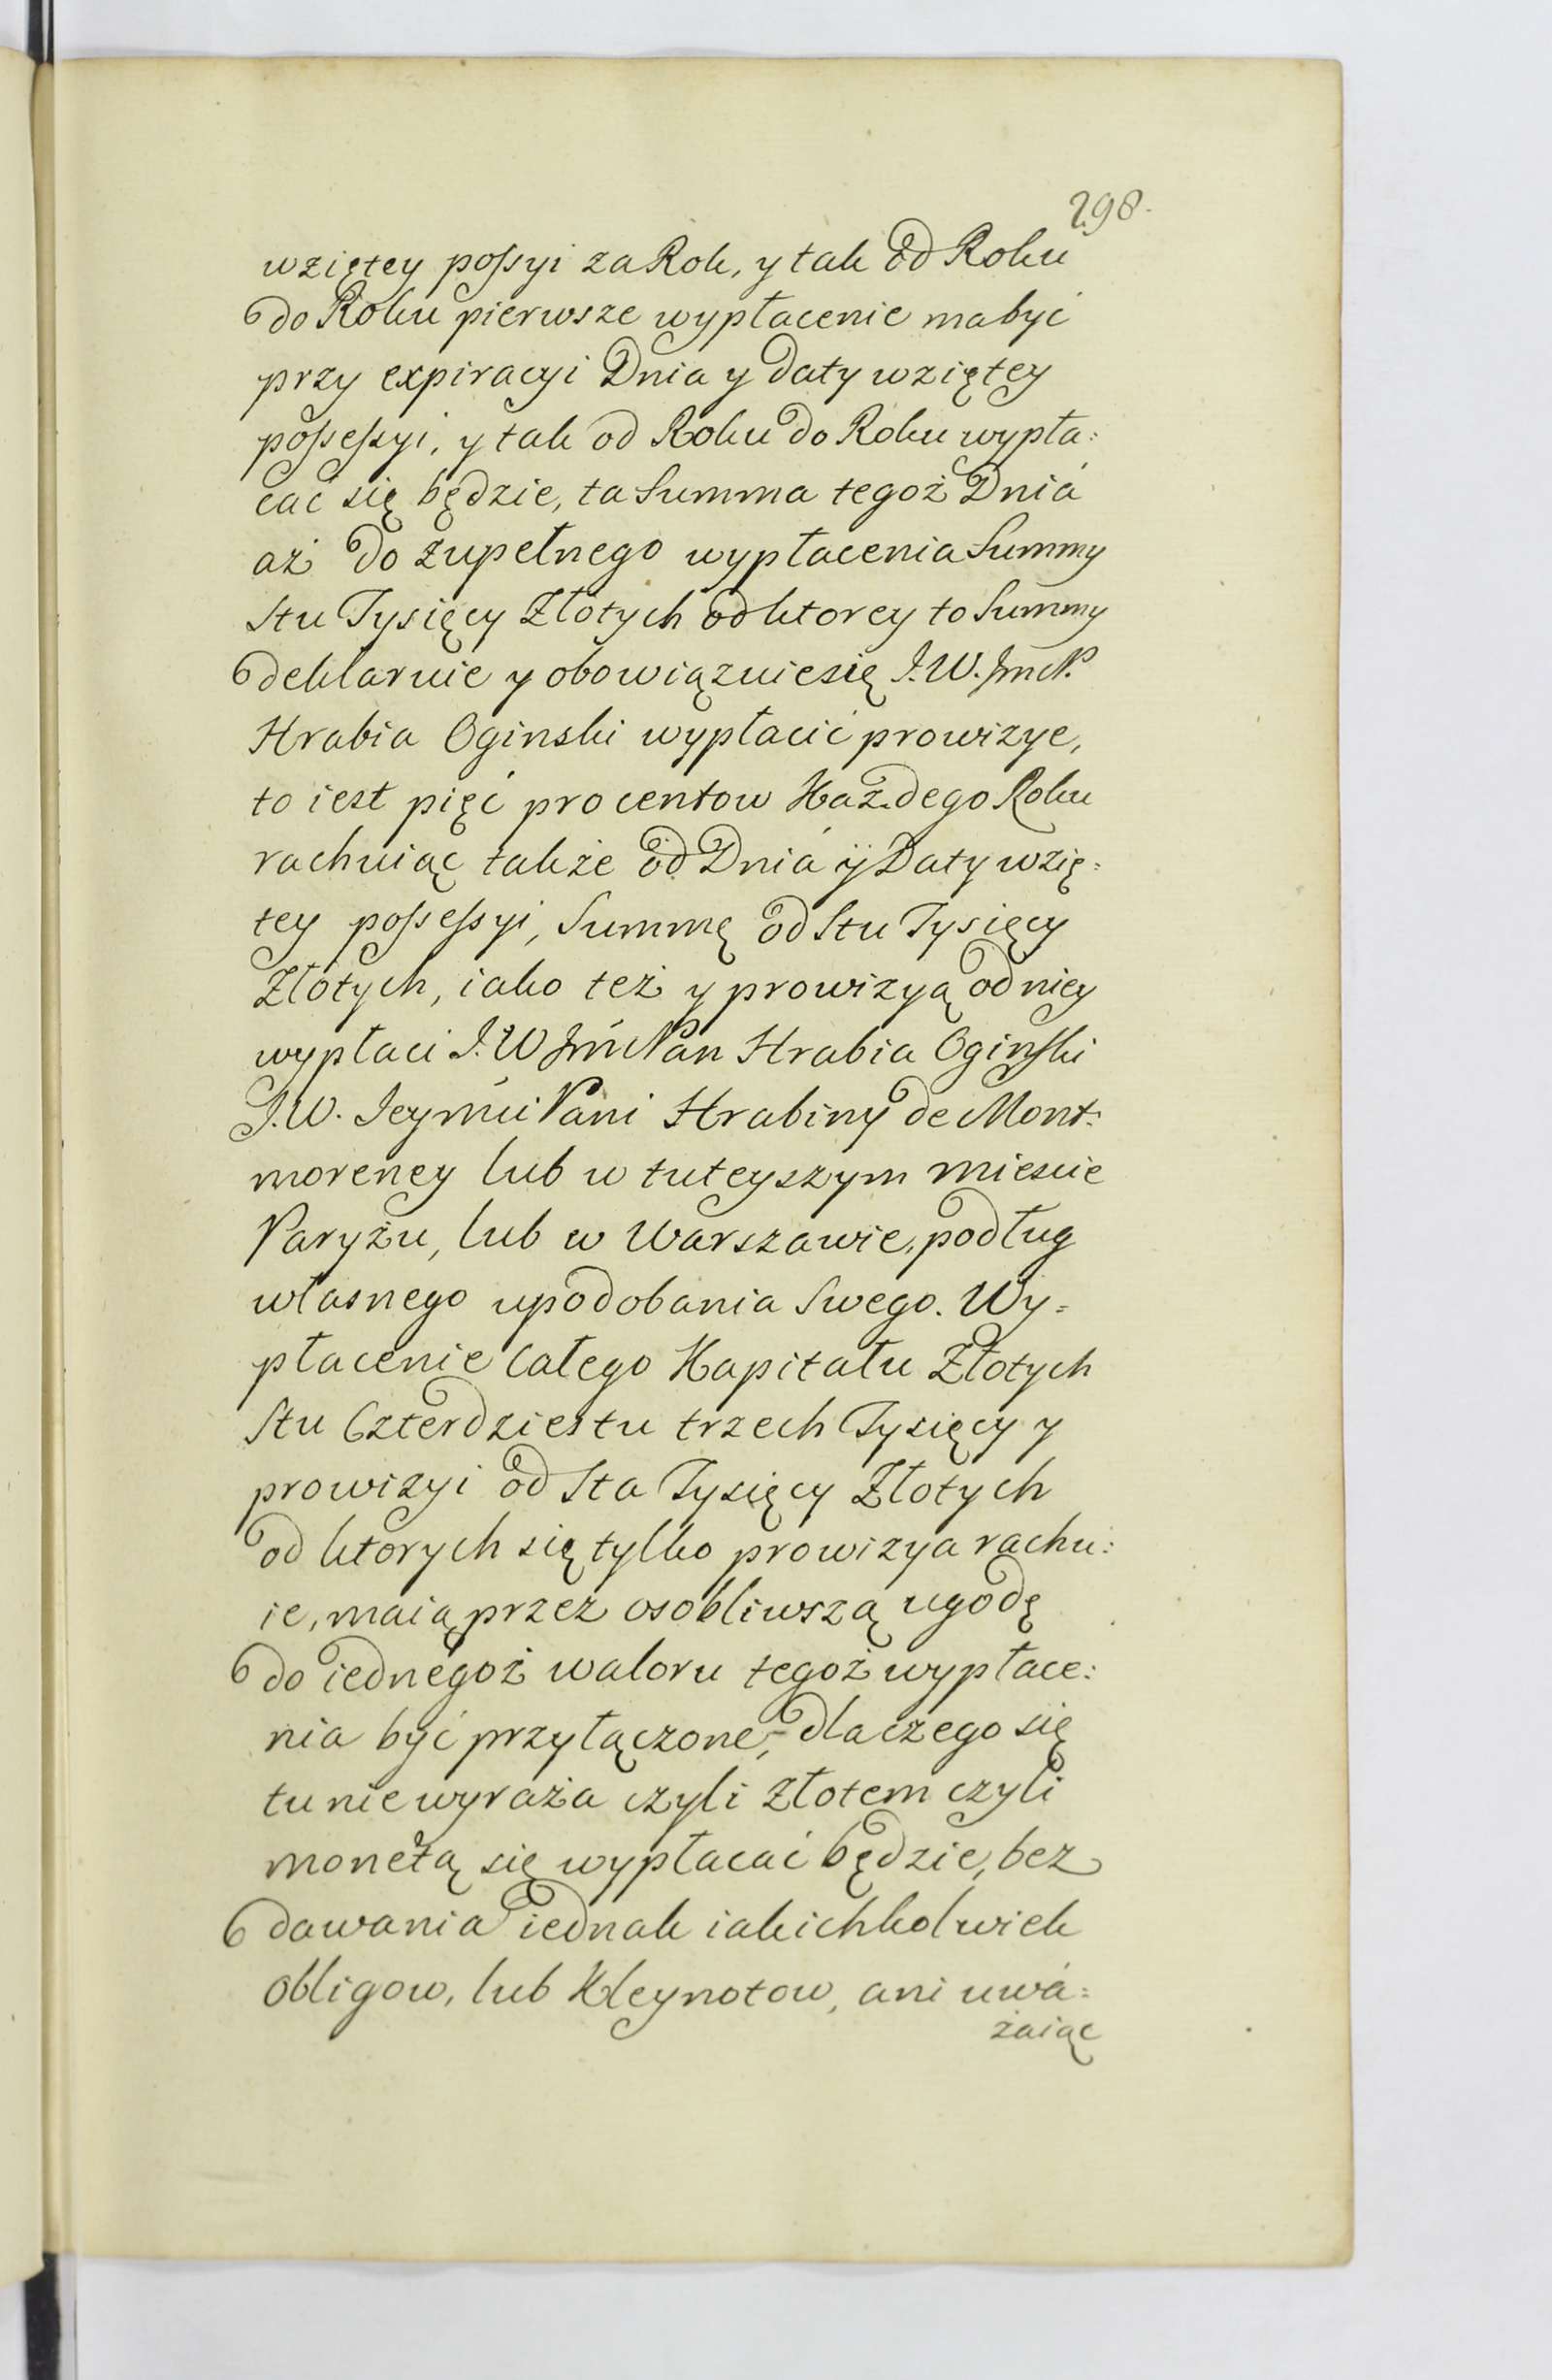 298.
wziętey possyi za Rok, y tak od Roku
do Roku pierwsze wypłacenie ma być
przy expiracyi Dnia y Daty wziętey
possessyi, y tak od Roku do Roku wypła:
cać się będzie, ta Summa tegoż Dnia
aż do zupełnego wypłacenia Summy
Stu Tysięcy Złotych od ktorey to Summy
deklaruie y obowiązuie się J.W. Jmć P.
Hrabia Oginski wypłacić prowizye,
to iest pięć procentow Każdego Roku
rachuiąc także od Dnia ÿ Daty wzię=
tey possessyi, Summę od Stu Tysięcy
Złotych, iako też y prowizyą od niey
wypłaci J.W Jmć Pan Hrabia Oginski
J.W. Jeymći Pani Hrabiny de Mont:
morency lub w tuteyszym miescie
Paryżu, lub w Warszawie, podług
własnego upodobania Swego. Wy=
płacenie Całego Kapitału Złotych
Stu Czterdziestu trzech Tysięcy y
prowizyi od Sta Tysięcy Złotych
od ktorych się tylko prowizya rachu:
ie, maią przez osobliwszą ugodę
do iednegoż waloru tegoż wypłace:
nia być przyłączone, dlaczego się
tu nie wyraża czyli złotem czyli
monetą się wypłacać będzie, bez
dawania iednak iakichkolwiek
Obligow, lub Kleynotow, ani uwa=
żaiąc